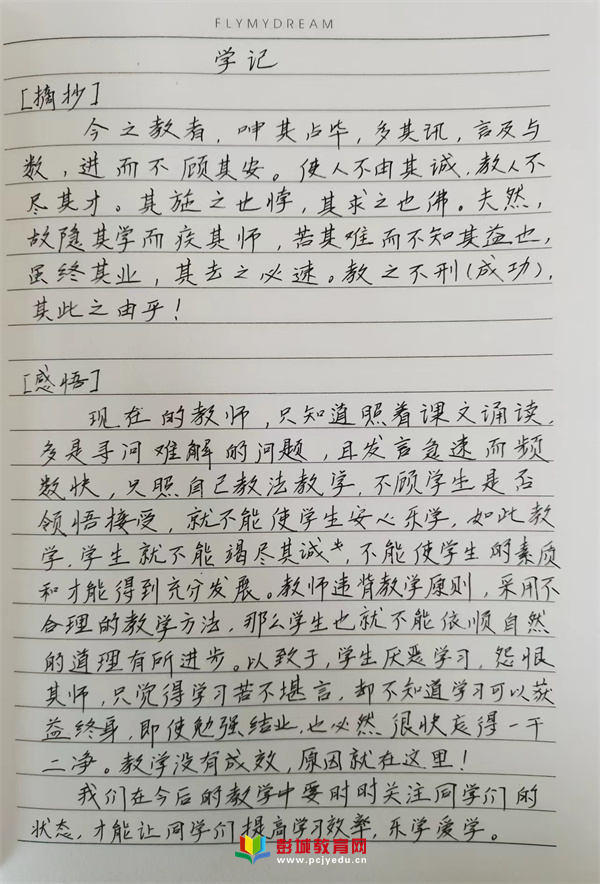 FLYMYDREAM
学记
[摘抄]
今之教者，呻其占毕，多其讯，言及与
数，进而不顾其安。使人不由其诚，教人不
尽其才。其施之也悖，其求之也佛。夫然，
故隐其学而疾其师，苦其难而不知其益也，
虽终其业，其去之必速。教之不刑(成功)，
其此之由乎！
[感悟]
现在的教师，只知道照着课文诵读，
多是寻问难解的问题，且发言急速而频
数快，只照自己教法教学，不顾学生是否
领悟接受，就不能使学生安心乐学，如此教
学，学生就不能竭尽其诚，不能使学生的素质
和才能得到充分发展。教师违背教学原则，采用不
合理的教学方法，那么学生也就不能依顺自然
的道理有所进步。以致于，学生厌恶学习，怨恨
其师，只觉得学习苦不堪言，却不知道学习可以获
益终身，即使勉强结业，也必然很快忘得一干
二净。教学没有成效，原因就在这里！
我们在今后的教学中要时时关注同学们的
状态，才能让同学们提高学习效率，乐学爱学。
彭城教育网
www.pcjyedu.cn